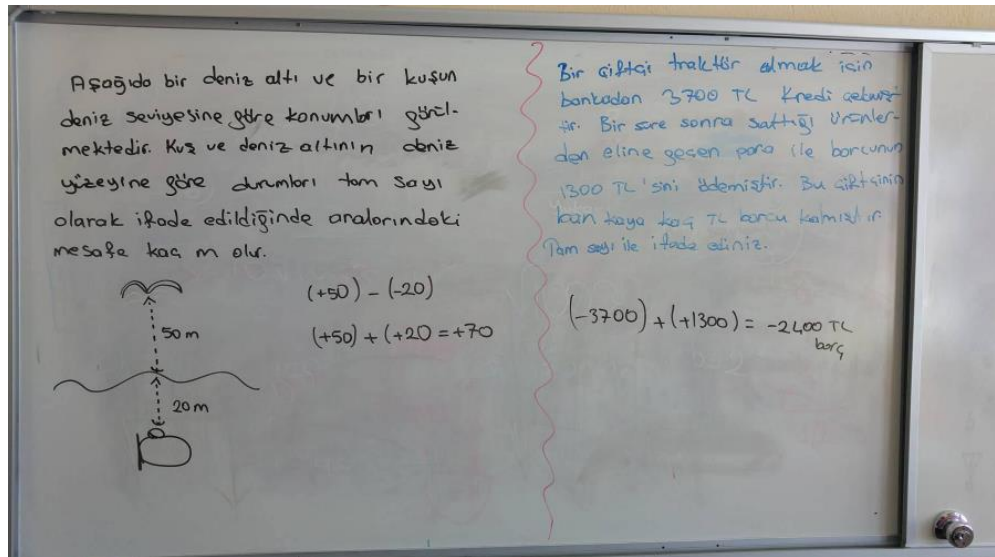 Aşağıda bir deniz altı ve bir kuşun
deniz seviyesine göre konumları görül-
mektedir. Kuş ve deniz altının deniz
yüzeyine göre durumları tam sayı
olarak ifade edildiğinde aralarındaki
mesafe kaç m olur.
50 m
20 m
(+50) - (-20)
(+50) + (+20 = +70
Bir çiftçi traktör almak için
bankadan 3700 TL Kredi çekmiş
tir. Bir süre sonra sattığı ürünler-
den eline geçen para ile borcunun
1300 TL'sini ödemiştir. Bu çiftçinin
bankaya kaç TL borcu kalmıştır.
Tam sayı ile ifade ediniz.
(-3700) + (+1300) = -2400 TL
borç